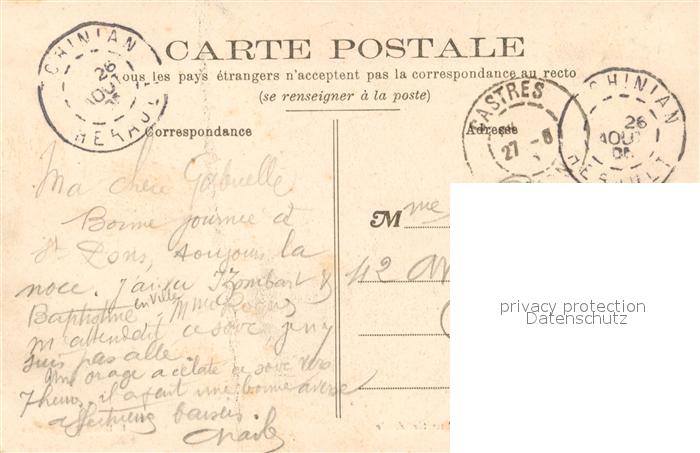 CHINIAN
26
AOUT
HERAULT
CARTE POSTALE
Tous les pays étrangers n'acceptent pas la correspondance au recto
(se renseigner à la poste)
CASTRES
27 - 8
CHINIAN
26
AOUT
06
HERAULT
Correspondance
Adresse
Ma chère Gabrielle
Bonne journée à
St Pons, toujours la
noce. J'ai vu
Baptistine en ville, Mme
m'attendait ce soir, je n'y
suis pas allé.
Un orage a éclaté ce soir vers
7 heures. il a fait une bonne averse
affectueux baisers.
Charles
Mme
42 Av
privacy protection
Datenschutz